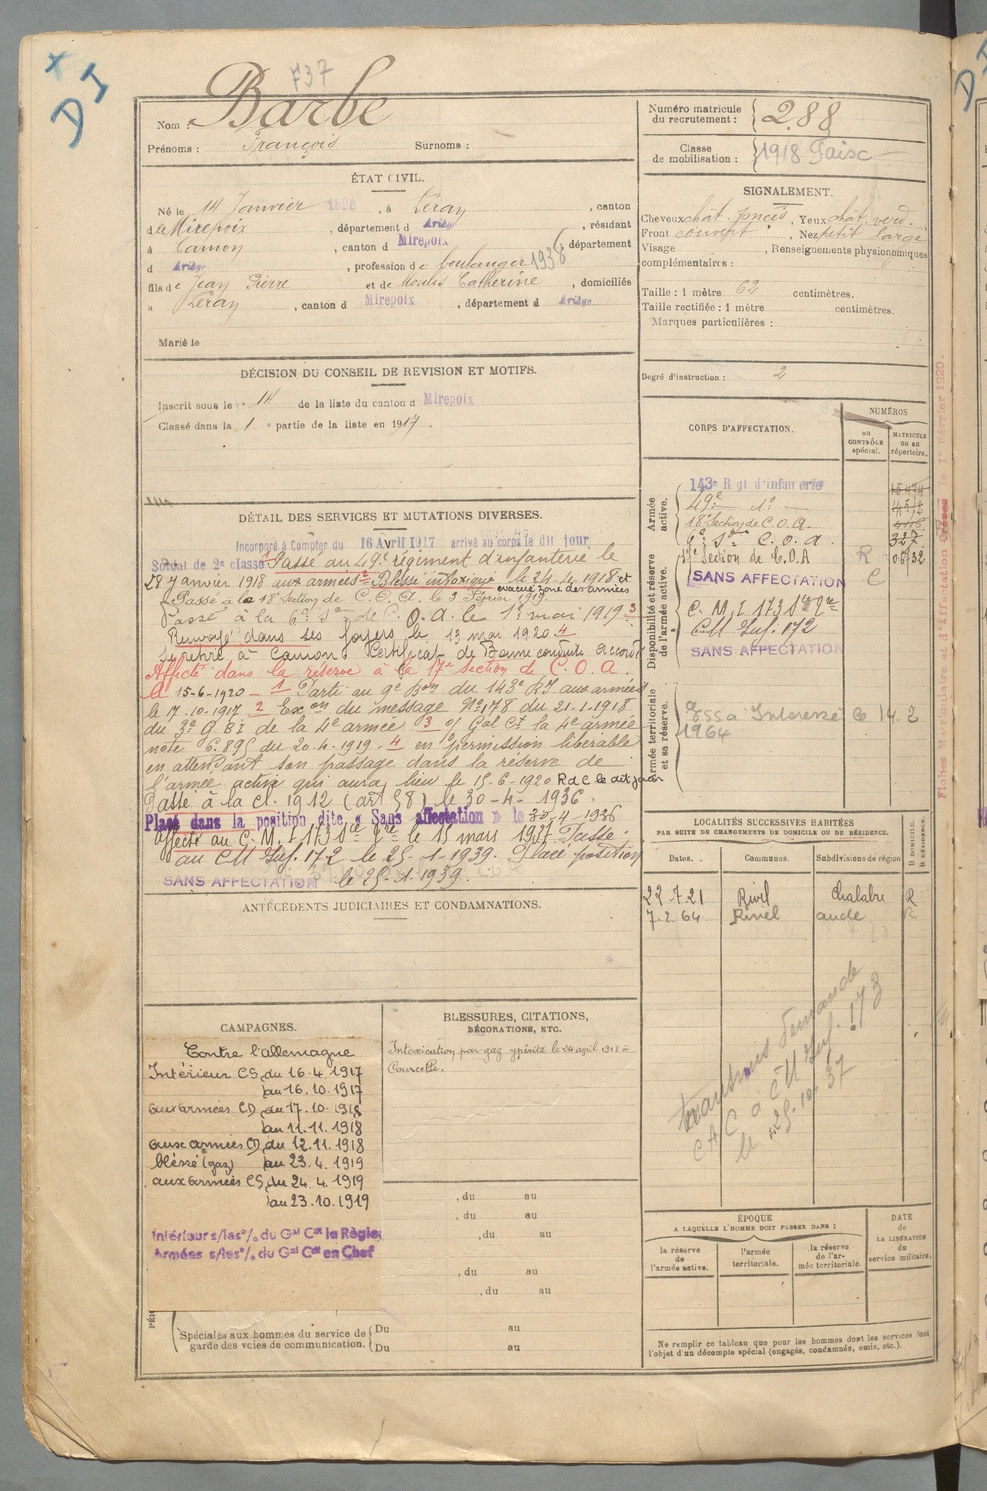 737
D I
Nom : Barbe
Prénoms : François Surnoms :
Numéro matricule du recrutement : 288
Classe de mobilisation : 1918
ÉTAT CIVIL.
Né le 14 Janvier 1898, à Léran, canton
de Mirepoix, département d Ariège, résidant
à Camon, canton d Mirepoix, département
d Ariège, profession de boulanger 1938
fils de Jean Pierre et de Moulis Catherine, domiciliés
à Léran, canton d Mirepoix, département d Ariège
Marié le
SIGNALEMENT.
Cheveux chat. foncés, Yeux chat. verd.
Front couvert, Nez petit large
Visage , Renseignements physionomiques
complémentaires :
Taille : 1 mètre 62 centimètres.
Taille rectifiée : 1 mètre centimètres.
Marques particulières :
Degré d'instruction : 2
DÉCISION DU CONSEIL DE REVISION ET MOTIFS.
Inscrit sous le n° 14 de la liste du canton d Mirepoix
Classé dans la 1e partie de la liste en 1917.
DÉTAIL DES SERVICES ET MUTATIONS DIVERSES.
Incorporé à Compter du 16 Avril 1917 arrivé au corps le dit jour
Soldat de 2e classe 1 Passé au 49e régiment d'infanterie le
28 Janvier 1918 aux armées 2 Blessé intoxiqué le 24-4-1918 et
évacué zone des armées
Passé à la 18e Section de C.O.A. le 3 Février 1919
Passé à la 6e Son de C.O.A. le 1er mai 1919 3
Renvoyé dans ses foyers le 13 mai 1920. 4
Se retire à Camon Certificat de Bonne conduite accordé
Affecté dans la réserve à la 17e Section de C.O.A.
le 15-6-1920 - 1 Parti au 9e Bon du 143e RI aux armées
le 17-10-1917 2 Exon du message No 178 du 21-1-1918
du 3e G. BI de la 4e armée 3 o/ Gal Ct la 4e armée
note 6.895 du 20-4-1919 - 4 en permission libérable
en attendant son passage dans la réserve de
l'armée active qui aura lieu le 15-6-1920 R d C le dit jour
Passé à la cl. 1912 (art 58) le 30-4-1936.
Placé dans la position dite « Sans affectation » le 30-4-1936
Affecté au C.M.I 173 le 15 mars 1937 Passé
au CM Inf. 172 le 25-1-1939. Placé position
SANS AFFECTATION le 25-1-1939.
CORPS D'AFFECTATION.
NUMÉROS
au CONTRÔLE spécial.
MATRICULE ou au répertoire.
Armée active.
143e Rgt d'infanterie
49e do
18e Section de C.O.A.
6e Son C.O.A. 327
Disponibilité et réserve de l'armée active.
17e Section de C.O.A R
SANS AFFECTATION C
C.M.I 173
C.M Inf. 172
SANS AFFECTATION
Armée territoriale et sa réserve.
1964
Fiches Matriculaire et d'Affectation Créées le 1er Février 1920.
LOCALITÉS SUCCESSIVES HABITÉES
PAR SUITE DE CHANGEMENTS DE DOMICILE OU DE RÉSIDENCE.
Dates. Communes. Subdivisions de région D DOMICILE. R RÉSIDENCE.
22.7.21 Rivel Chalabre R
7.2.64 Rivel aude R
ANTÉCÉDENTS JUDICIAIRES ET CONDAMNATIONS.
CAMPAGNES.
Contre l'allemagne
Intérieur CS du 16.4.1917
au 16.10.1917
aux armées CD du 17.10.1918
au 11.11.1918
aux armées CD du 12.11.1918
blessé (gaz) au 23.4.1919
aux armées CS du 24.4.1919
au 23.10.1919
Intérieur s/les % du Gal Cdt la Région
Armées s/les % du Gal Cdt en Chef
BLESSURES, CITATIONS,
DÉCORATIONS, ETC.
Intoxication par gaz ypérite le 24 avril 1918 à
Courcelle.
, du au
, du au
, du au
, du au
, du au
Spéciales aux hommes du service de garde des voies de communication.
Du au
Du au
demande
C A C à CM Inf. 173
le 25-10-37
ÉPOQUE
A LAQUELLE L'HOMME DOIT PASSER DANS :
la réserve de l'armée active.
l'armée territoriale.
la réserve de l'armée territoriale.
DATE de LA LIBÉRATION du service militaire.
Ne remplir ce tableau que pour les hommes dont les services font
l'objet d'un décompte spécial (engagés, condamnés, omis, etc.).